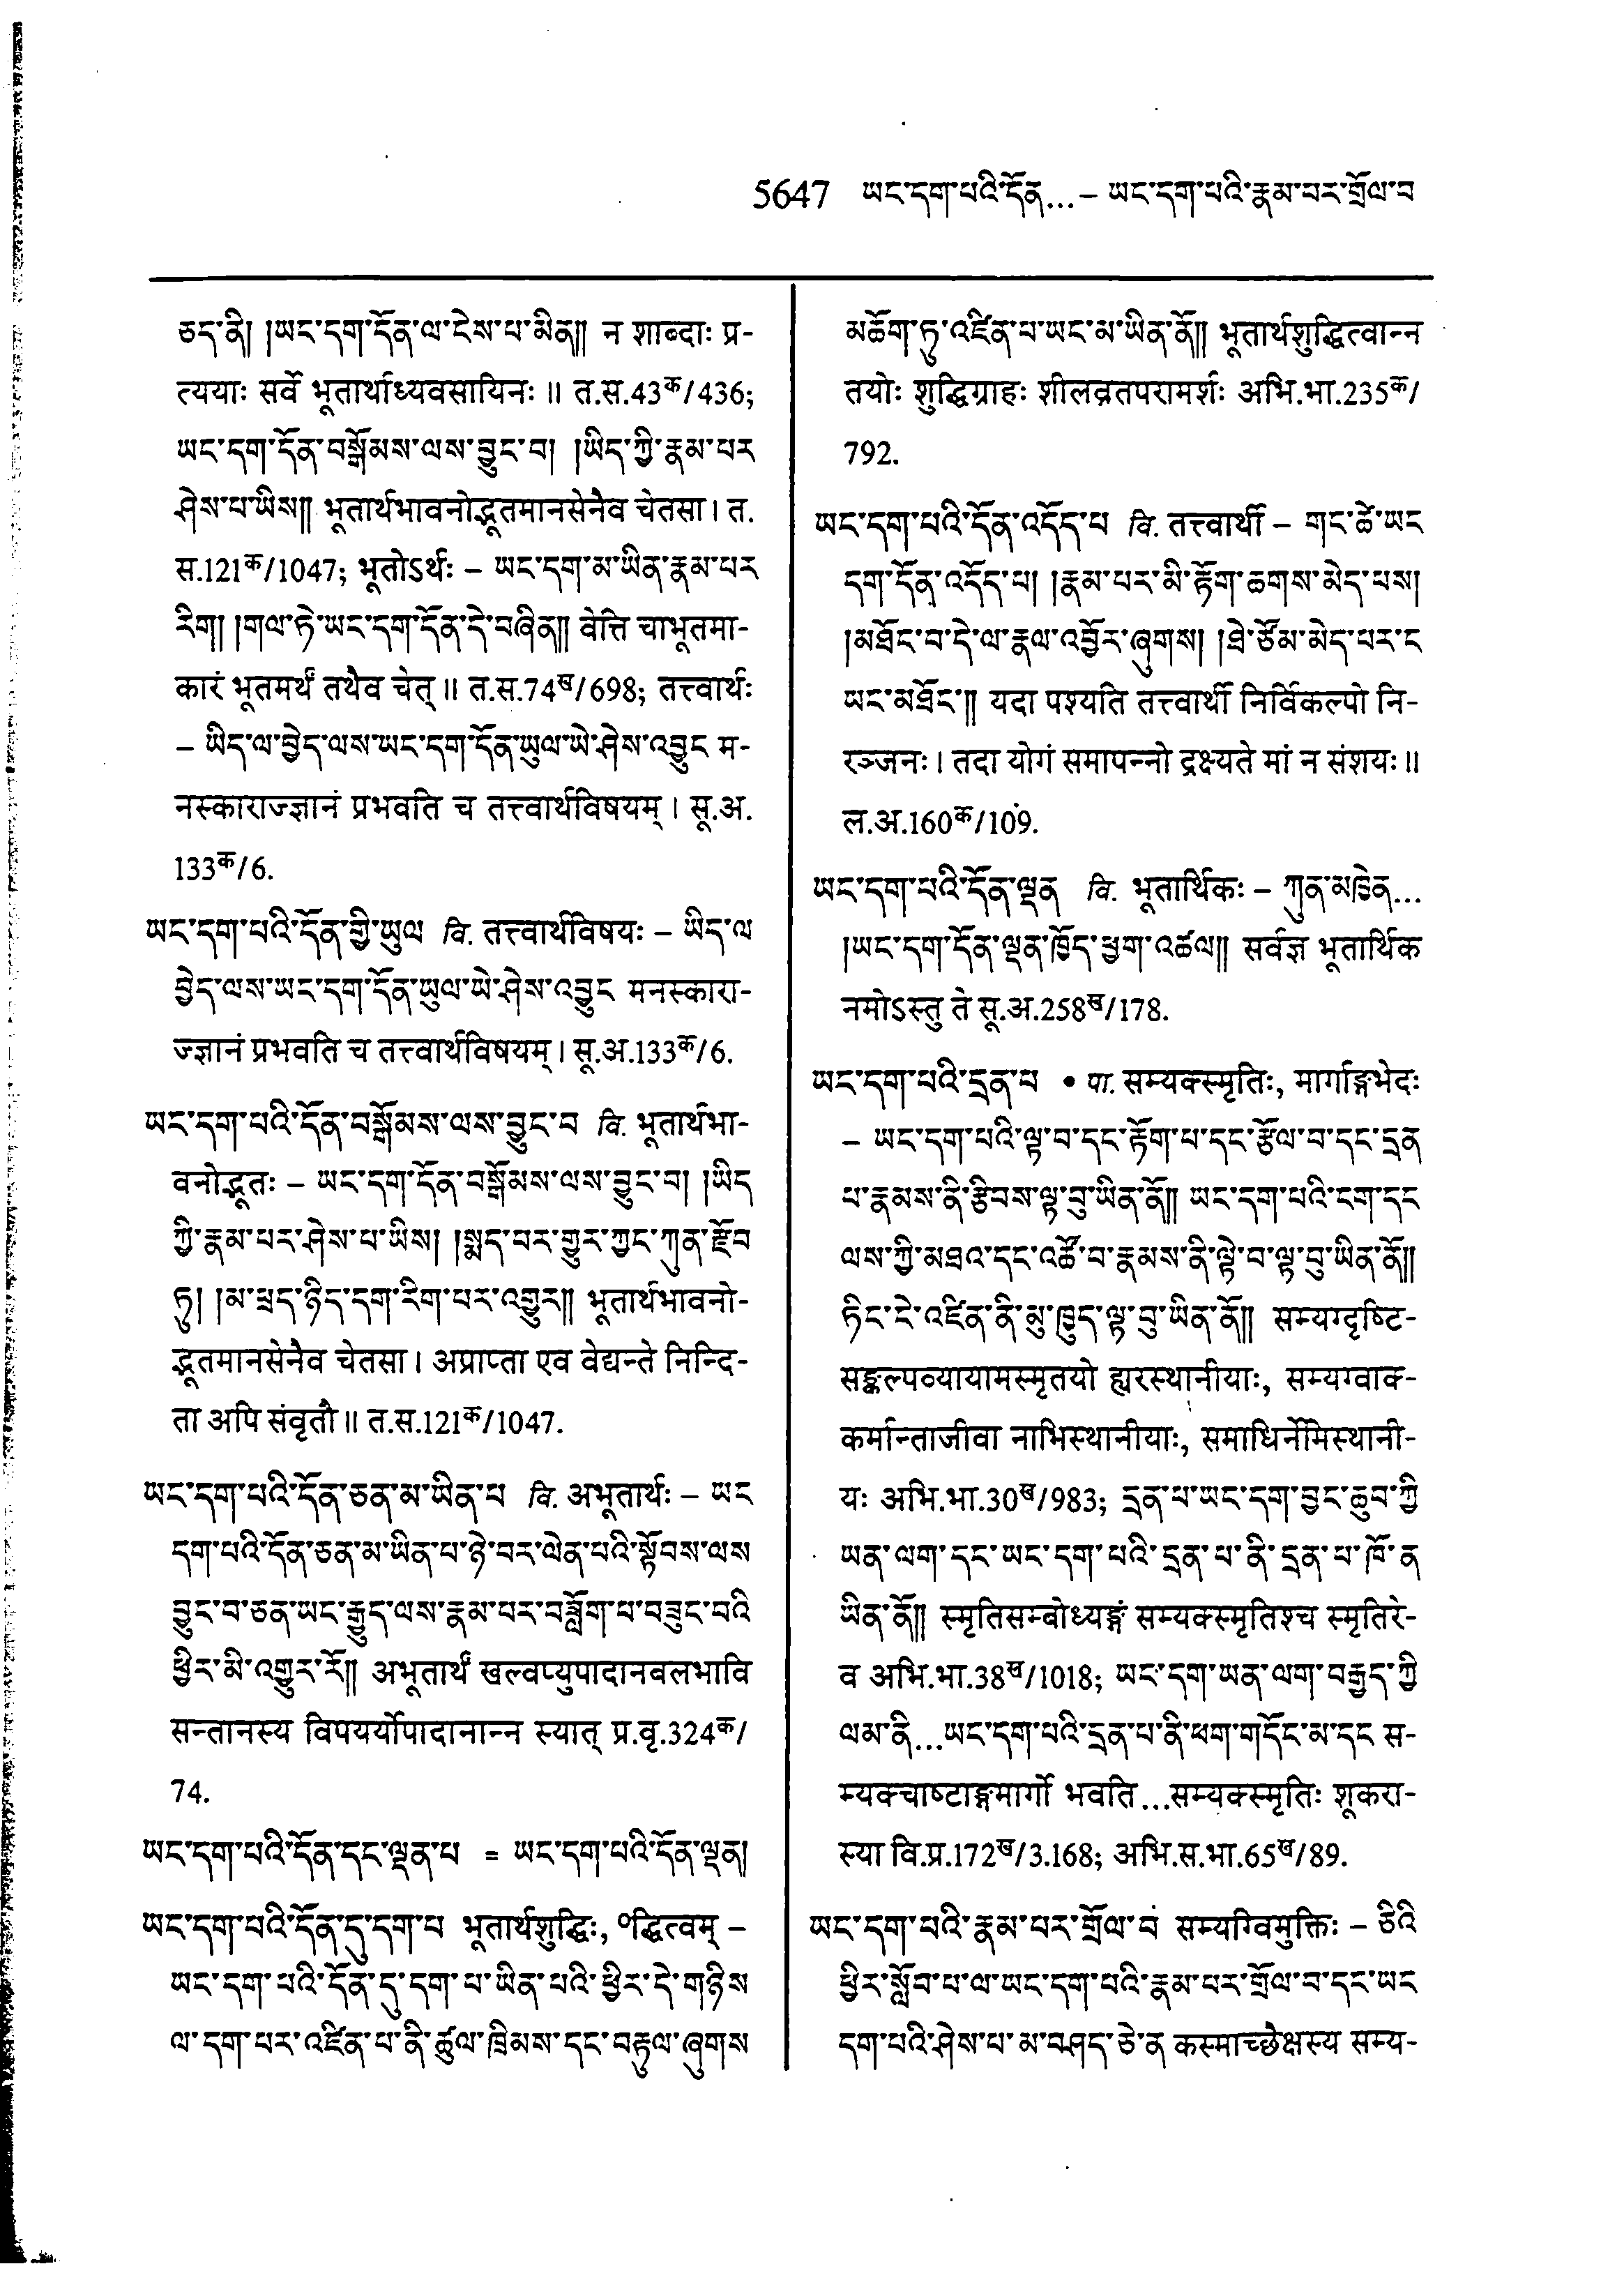 5647 ཡང་དག་པའི་དོན...– ཡང་དག་པའི་རྣམ་པར་གྲོལ་བ
ཅད་ནི། །ཡང་དག་དོན་ལ་ངེས་པ་མིན།། न शाब्दाः प्र-
त्ययाः सर्वे भूतार्थाध्यवसायिनः ॥ त.स.43क/436;
ཡང་དག་དོན་བསྒོམས་ལས་བྱུང་བ། །ཡིད་ཀྱི་རྣམ་པར
ཤེས་པ་ཡིས།། भूतार्थभावनोद्भूतमानसेनैव चेतसा। त.
स.121क/1047; भूतोऽर्थः – ཡང་དག་མ་ཡིན་རྣམ་པར
རིག། །གལ་ཏེ་ཡང་དག་དོན་དེ་བཞིན།། वेत्ति चाभूतमा-
कारं भूतमर्थं तथैव चेत् ॥ त.स.74ख/698; तत्त्वार्थः
– ཡིད་ལ་བྱེད་ལས་ཡང་དག་དོན་ཡུལ་ཡེ་ཤེས་འབྱུང म-
नस्काराज्ज्ञानं प्रभवति च तत्त्वार्थविषयम्। सू.अ.
133क/6.
ཡང་དག་པའི་དོན་གྱི་ཡུལ वि. तत्त्वार्थविषयः – ཡིད་ལ
བྱེད་ལས་ཡང་དག་དོན་ཡུལ་ཡེ་ཤེས་འབྱུང मनस्कारा-
ज्ज्ञानं प्रभवति च तत्त्वार्थविषयम्। सू.अ.133क/6.
ཡང་དག་པའི་དོན་བསྒོམས་ལས་བྱུང་བ वि. भूतार्थभा-
वनोद्भूतः – ཡང་དག་དོན་བསྒོམས་ལས་བྱུང་བ། །ཡིད
ཀྱི་རྣམ་པར་ཤེས་པ་ཡིས། །སྨད་པར་གྱུར་ཀྱང་ཀུན་རྫོབ
ཏུ། །མ་ཕྲད་ཉིད་དག་རིག་པར་འགྱུར།། भूतार्थभावनो-
द्भूतमानसेनैव चेतसा। अप्राप्ता एव वेद्यन्ते निन्दि-
ता अपि संवृतौ ॥ त.स.121क/1047.
ཡང་དག་པའི་དོན་ཅན་མ་ཡིན་པ वि. अभूतार्थः – ཡང
དག་པའི་དོན་ཅན་མ་ཡིན་པ་ཉེ་བར་ལེན་པའི་སྟོབས་ལས
བྱུང་བ་ཅན་ཡང་རྒྱུད་ལས་རྣམ་པར་བཟློག་པ་བཟུང་བའི
ཕྱིར་མི་འགྱུར་རོ།། अभूतार्थं खल्वप्युपादानबलभावि
सन्तानस्य विपयर्योपादानान्न स्यात् प्र.वृ.324क/
74.
ཡང་དག་པའི་དོན་དང་ལྡན་པ = ཡང་དག་པའི་དོན་ལྡན།
ཡང་དག་པའི་དོན་དུ་དག་པ भूतार्थशुद्धिः, ०द्धित्वम् –
ཡང་དག་པའི་དོན་དུ་དག་པ་ཡིན་པའི་ཕྱིར་དེ་གཉིས
ལ་དག་པར་འཛིན་པ་ནི་ཚུལ་ཁྲིམས་དང་བརྟུལ་ཞུགས
མཆོག་ཏུ་འཛིན་པ་ཡང་མ་ཡིན་ནོ།། भूतार्थशुद्धित्वान्न
तयोः शुद्धिग्राहः शीलव्रतपरामर्शः अभि.भा.235क/
792.
ཡང་དག་པའི་དོན་འདོད་པ वि. तत्त्वार्थी – གང་ཚེ་ཡང
དག་དོན་འདོད་པ། །རྣམ་པར་མི་རྟོག་ཆགས་མེད་པས།
།མཐོང་བ་དེ་ལ་རྣལ་འབྱོར་ཞུགས། །ཐེ་ཙོམ་མེད་པར་ང
ཡང་མཐོང་།། यदा पश्यति तत्त्वार्थी निर्विकल्पो नि-
रञ्जनः। तदा योगं समापन्नो द्रक्ष्यते मां न संशयः ॥
ल.अ.160क/109.
ཡང་དག་པའི་དོན་ལྡན वि. भूतार्थिकः – ཀུན་མཁྱེན...
།ཡང་དག་དོན་ལྡན་ཁྱོད་ཕྱག་འཚལ།། सर्वज्ञ भूतार्थिक
नमोऽस्तु ते सू.अ.258ख/178.
ཡང་དག་པའི་དྲན་པ • पा. सम्यक्स्मृतिः, मार्गाङ्गभेदः
– ཡང་དག་པའི་ལྟ་བ་དང་རྟོག་པ་དང་རྩོལ་བ་དང་དྲན
པ་རྣམས་ནི་རྩིབས་ལྟ་བུ་ཡིན་ནོ།། ཡང་དག་པའི་ངག་དང
ལས་ཀྱི་མཐའ་དང་འཚོ་བ་རྣམས་ནི་ལྟེ་བ་ལྟ་བུ་ཡིན་ནོ།།
ཏིང་ངེ་འཛིན་ནི་མུ་ཁྱུད་ལྟ་བུ་ཡིན་ནོ།། सम्यग्दृष्टि-
सङ्कल्पव्यायामस्मृतयो ह्यरस्थानीयाः, सम्यग्वाक्-
कर्मान्ताजीवा नाभिस्थानीयाः, समाधिर्नेमिस्थानी-
यः अभि.भा.30ख/983; དྲན་པ་ཡང་དག་བྱང་ཆུབ་ཀྱི
ཡན་ལག་དང་ཡང་དག་པའི་དྲན་པ་ནི་དྲན་པ་ཁོ་ན
ཡིན་ནོ།། स्मृतिसम्बोध्यङ्गं सम्यक्स्मृतिश्च स्मृतिरे-
व अभि.भा.38ख/1018; ཡང་དག་ཡན་ལག་བརྒྱད་ཀྱི
ལམ་ནི...ཡང་དག་པའི་དྲན་པ་ནི་ཕག་གདོང་མ་དང स-
म्यक्चाष्टाङ्गमार्गो भवति...सम्यक्स्मृतिः शूकरा-
स्या वि.प्र.172ख/3.168; अभि.स.भा.65ख/89.
ཡང་དག་པའི་རྣམ་པར་གྲོལ་བ सम्यग्विमुक्तिः – ཅིའི
ཕྱིར་སློབ་པ་ལ་ཡང་དག་པའི་རྣམ་པར་གྲོལ་བ་དང་ཡང
དག་པའི་ཤེས་པ་མ་བཤད་ཅེ་ན कस्माच्छैक्षस्य सम्य-